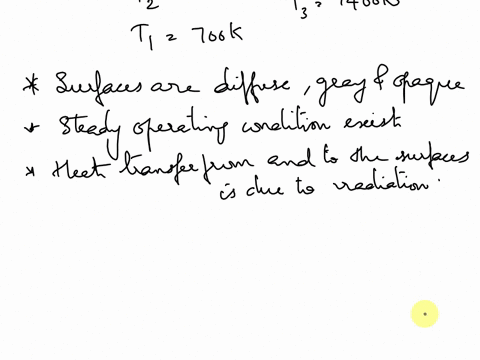 T₃ = 1400K
T₁ = 700K
* Surfaces are diffuse, gray & opaque
* Steady operating condition exist
* Heat transfer from and to the surfaces
is due to radiation.